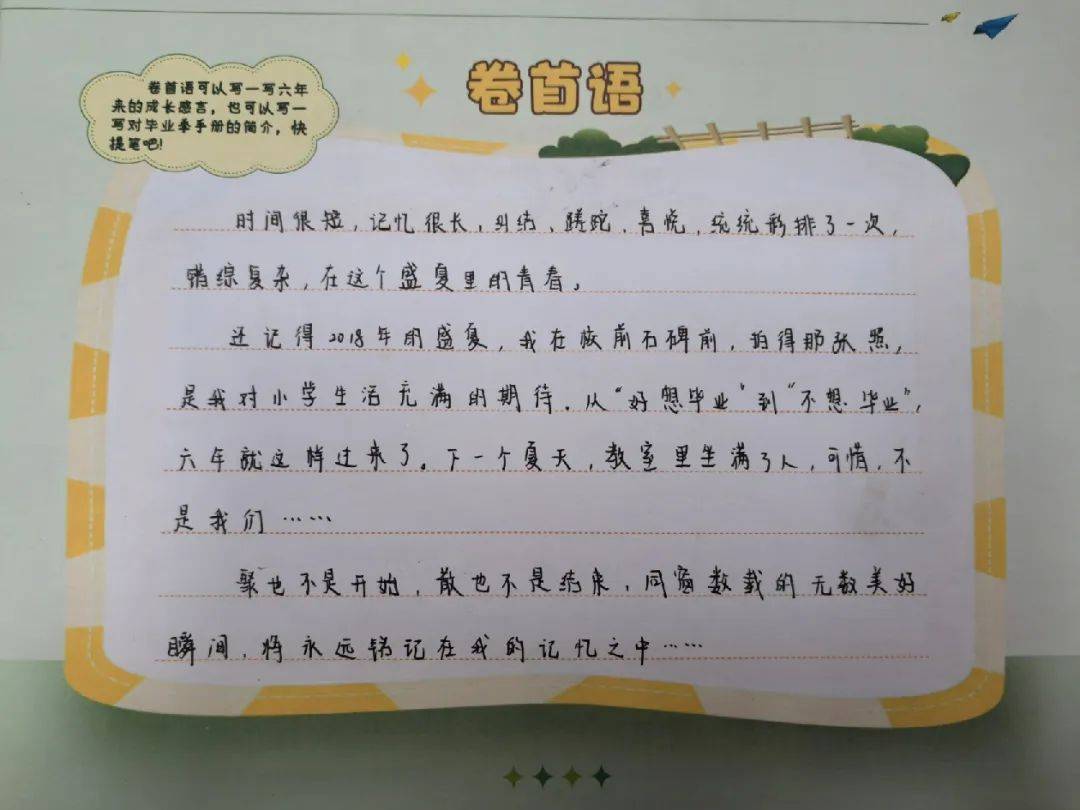 卷首语可以写一写六年
来的成长感言，也可以写一
写对毕业季手册的简介，快
提笔吧!
卷首语
时间很短，记忆很长，纠结、蹉跎、喜悦，统统彩排了一次，
错综复杂，在这个盛夏里的青春。
还记得2018年的盛夏，我在校前石碑前，拍得那张照，
是我对小学生活充满的期待。从“好想毕业”到“不想毕业”，
六年就这样过来了。下一个夏天，教室里坐满了人，可惜，不
是我们……
聚也不是开始，散也不是结束，同窗数载的无数美好
瞬间，将永远铭记在我的记忆之中……